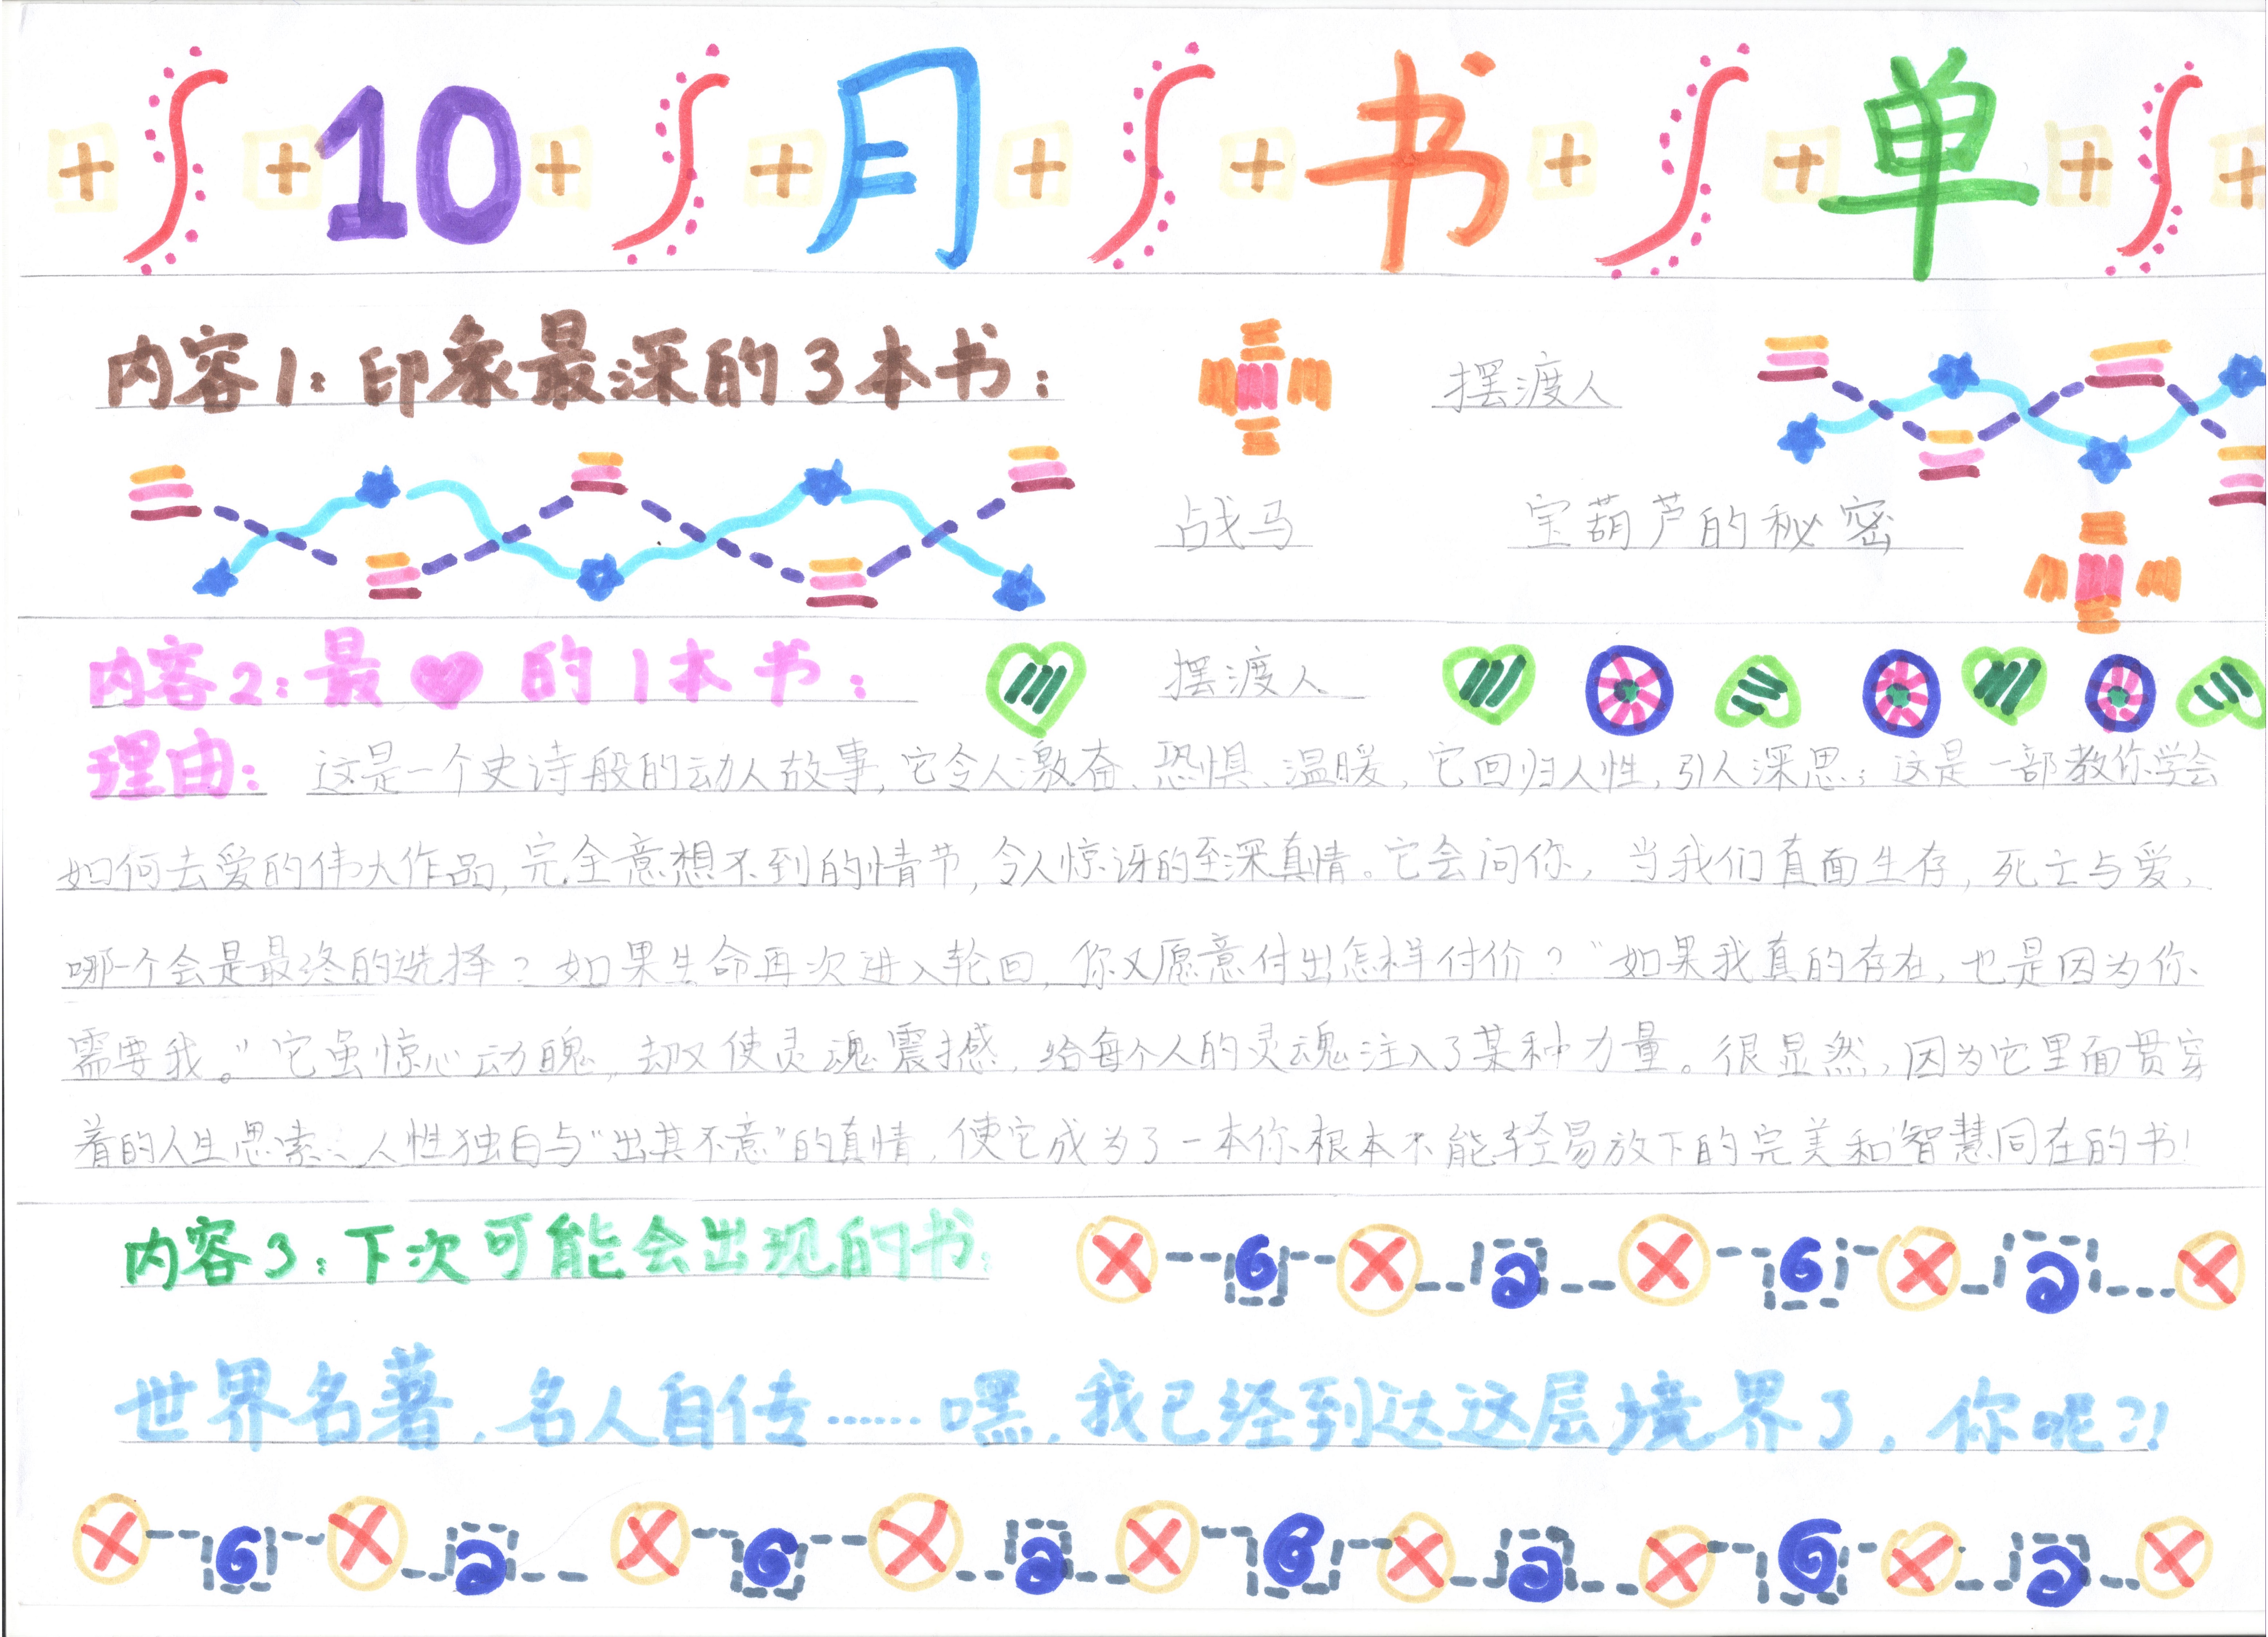 10月书单
内容1:印象最深的3本书:
摆渡人
战马
宝葫芦的秘密
内容2:最♥的1本书:
摆渡人
理由:这是一个史诗般的动人故事,它令人激奋、恐惧、温暖,它回归人性,引人深思;这是一部教你学会
如何去爱的伟大作品,完全意想不到的情节,令人惊讶的至深真情。它会问你,当我们直面生存,死亡与爱,
哪一个会是最终的选择?如果生命再次进入轮回,你又愿意付出怎样付价?“如果我真的存在,也是因为你
需要我。”它虽惊心动魄,却又使灵魂震撼,给每个人的灵魂注入了某种力量。很显然,因为它里面贯穿
着的人生思索、人性独白与“出其不意”的真情,使它成为了一本你根本不能轻易放下的完美和智慧同在的书!
内容3:下次可能会出现的书:
世界名著,名人自传……嘿,我已经到达这层境界了,你呢?!